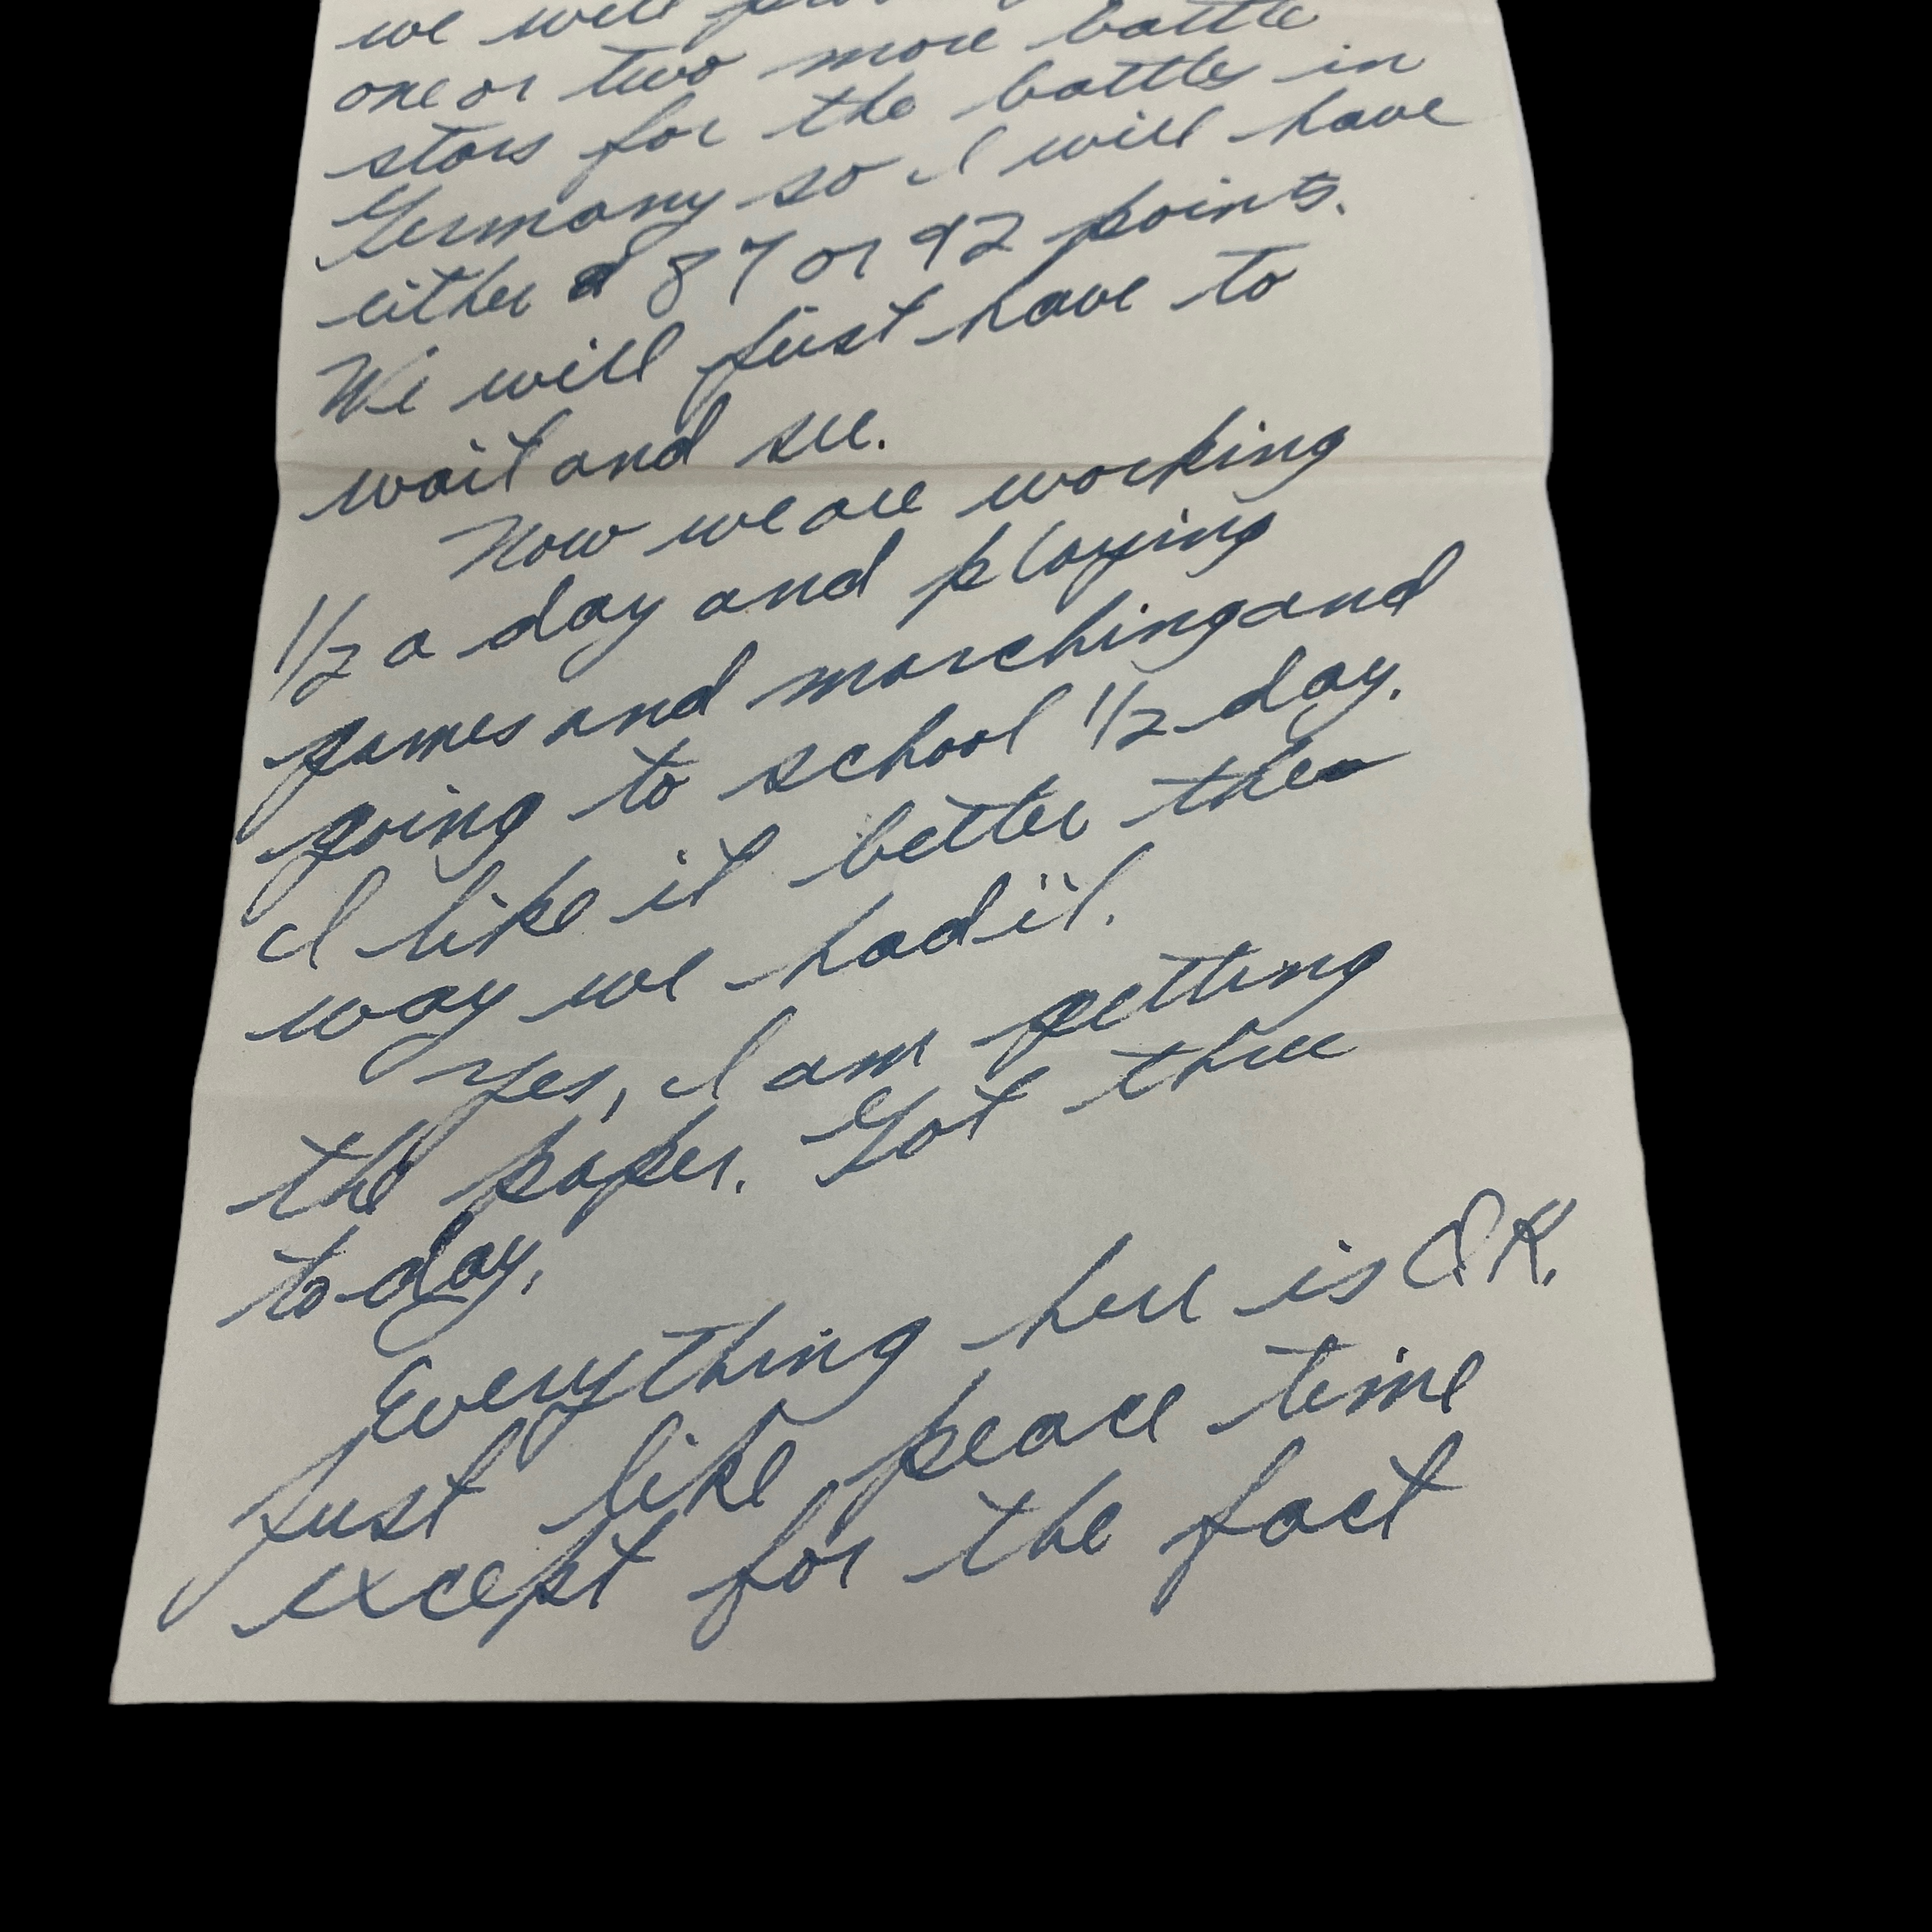 we will
one or two more battle
stars for the battles in
Germany so I will have
either 87 or 92 points.
We will just have to
wait and see.
Now we are working
1/2 a day and playing
games and marching and
going to school 1/2 day.
I like it better the
way we had it.
Yes, I am getting
the paper. Got three
to-day.
Everything here is O.K.
Just like peace time
except for the fact